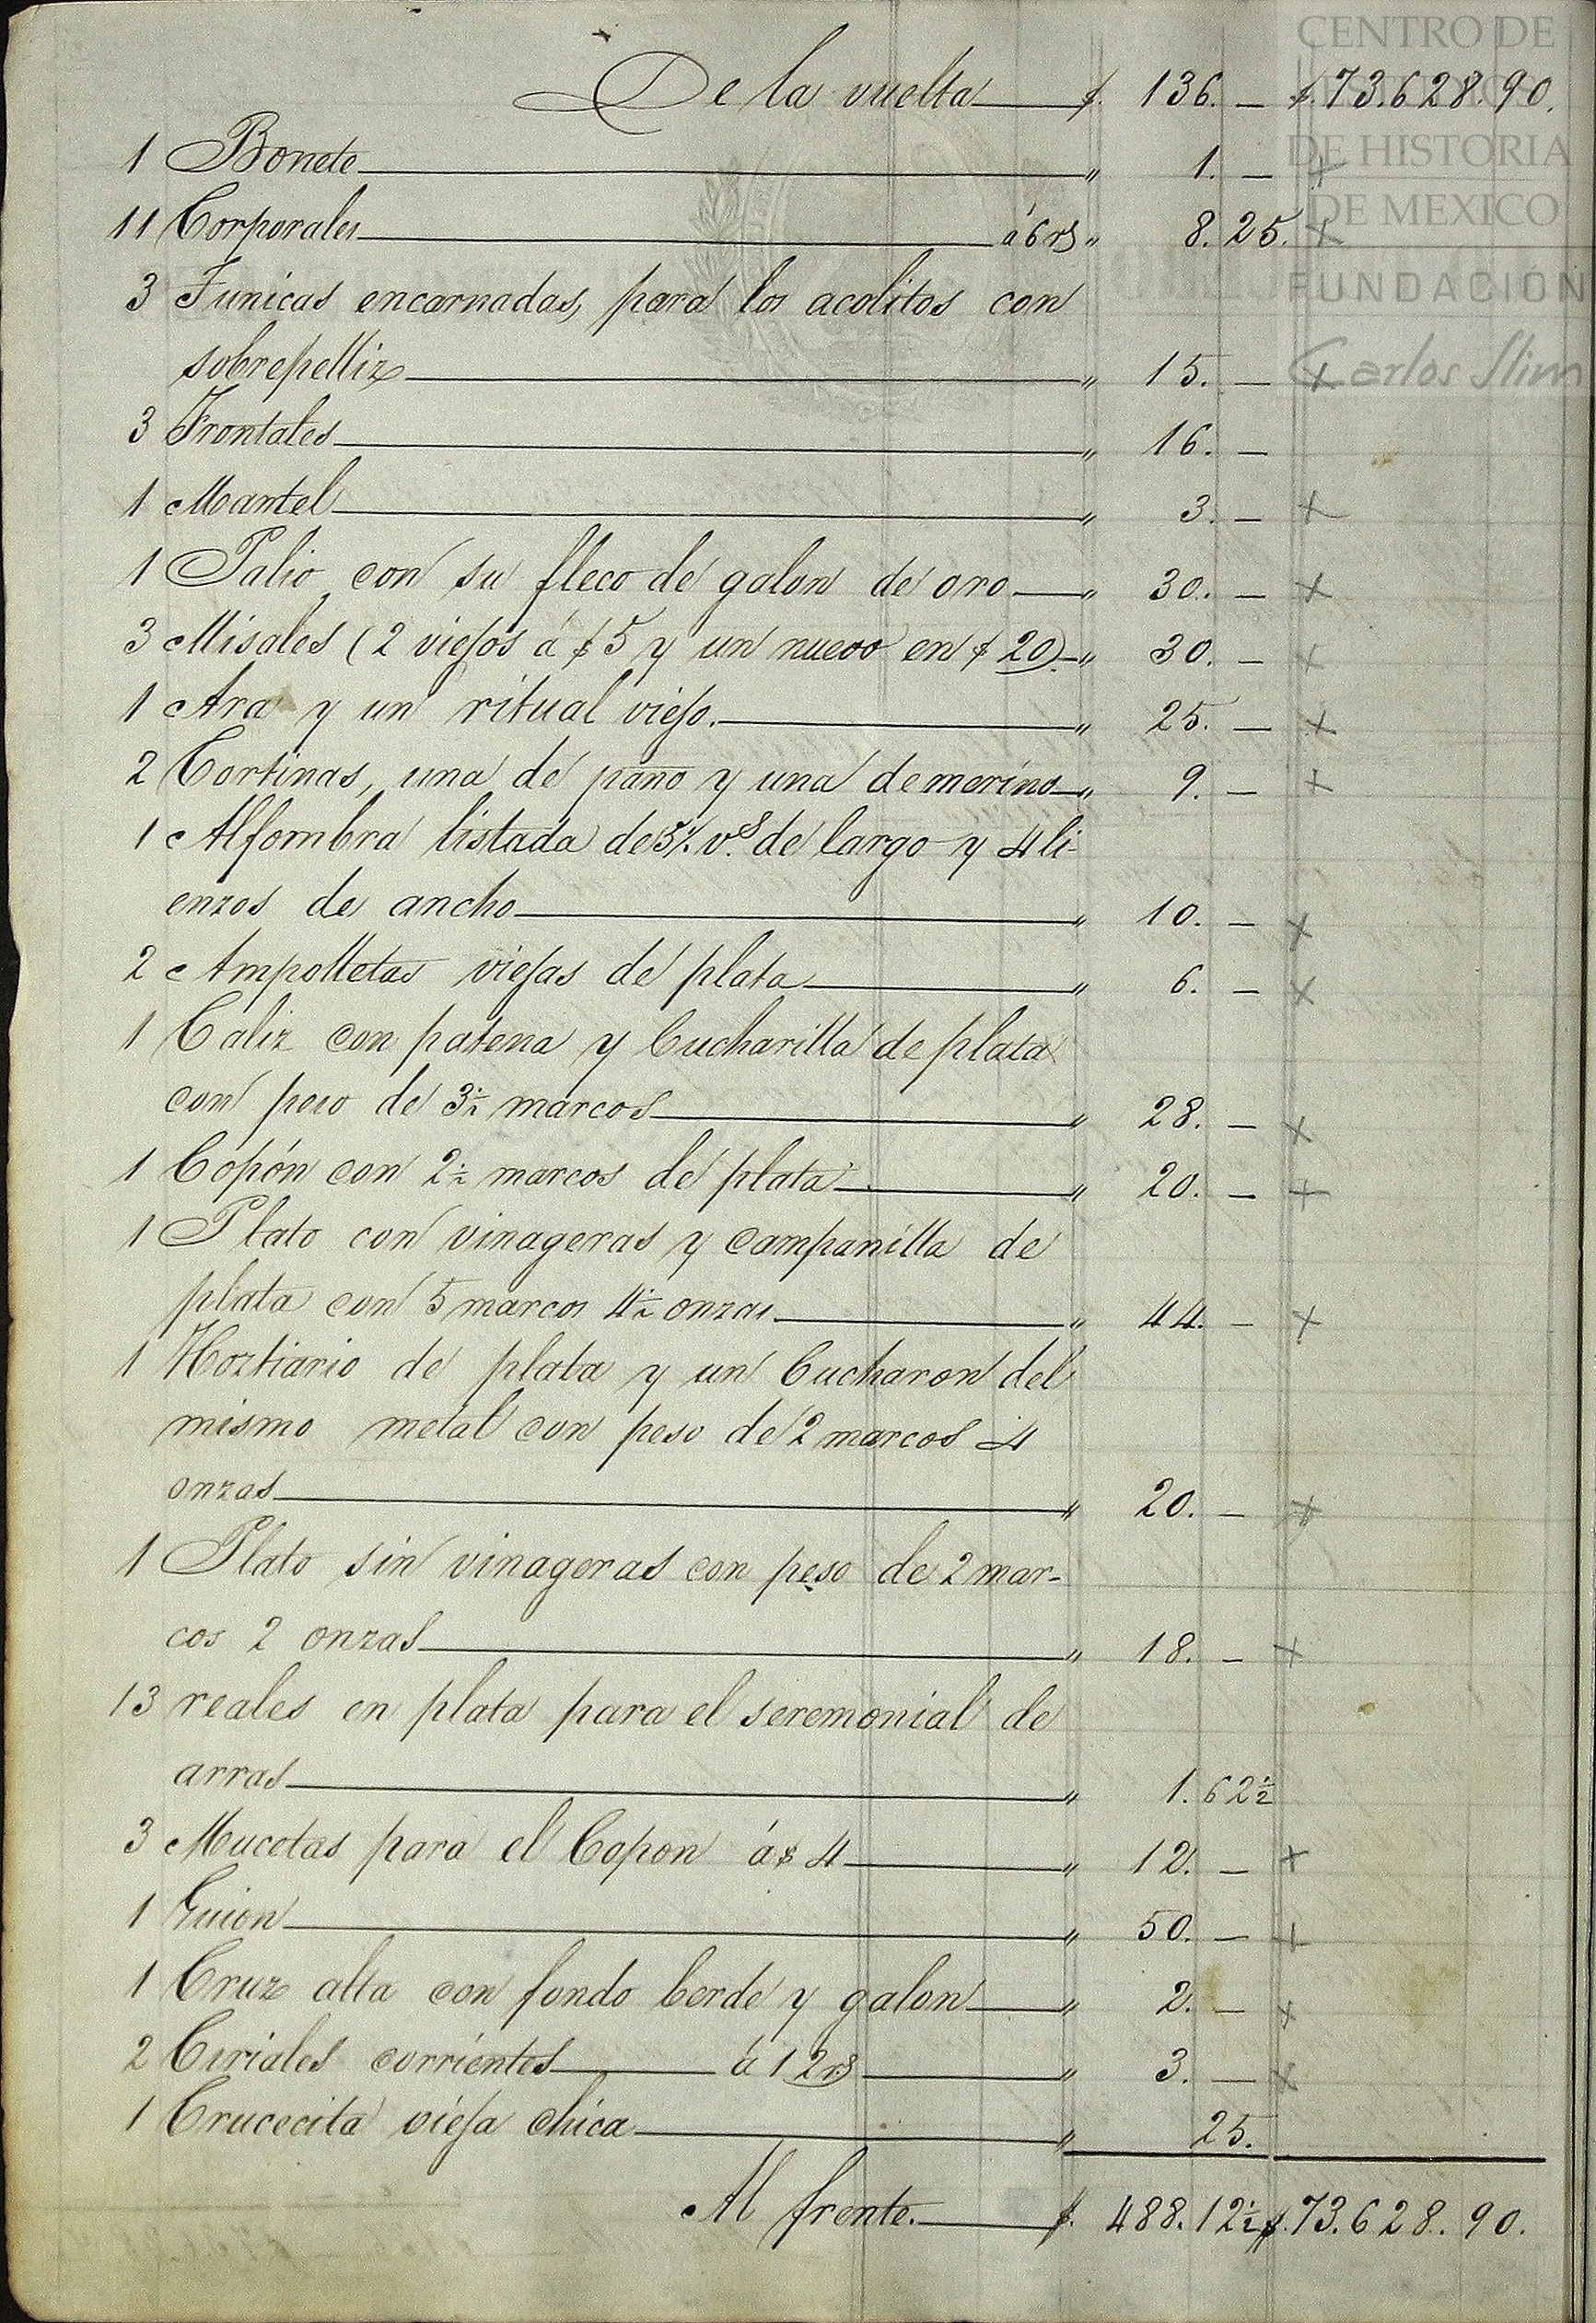 CENTRO DE
ESTUDIOS
DE HISTORIA
DE MEXICO
FUNDACIÓN
Carlos Slim
De la vuelta $. 136. — $.73.628.90.
1 Bonete " 1. — +
11 Corporales á 6 rs " 8.25. +
3 Tunicas encarnadas, para los acolitos con
sobrepelliz " 15. — +
3 Frontales " 16. —
1 Mantel " 3. — +
1 Palio con su fleco de galon de oro " 30. — +
3 Misales (2 viejos á $5 y un nuevo en $20) " 30. — +
1 Ara y un ritual viejo. " 25. — +
2 Cortinas, una de paño y una de merino " 9. — +
1 Alfombra listada de 3½ v.s de largo y 4 li-
enzos de ancho " 10. — +
2 Ampolletas viejas de plata " 6. — +
1 Caliz con patena y Cucharilla de plata
con peso de 3½ marcos " 28. — +
1 Copón con 2½ marcos de plata " 20. — +
1 Plato con vinageras y campanilla de
plata con 5 marcos 4½ onzas " 44. — +
1 Hoztiario de plata y un Cucharon del
mismo metal con peso de 2 marcos 4
onzas " 20. — +
1 Plato sin vinageras con peso de 2 mar-
cos 2 onzas " 18. — +
13 reales en plata para el seremonial de
arras " 1.62½
3 Mucetas para el Copon á $4 " 12. — +
1 Guion " 50. — +
1 Cruz alta con fondo berde y galon " 2. — +
2 Ciriales corrientes á 12 rs " 3. — +
1 Crucecita vieja chica " 25.
Al frente. $. 488.12½ $.73.628.90.